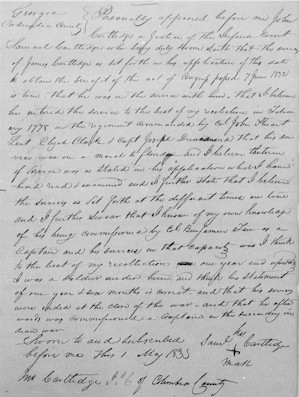 Georgia
Columbia County } Personally appeared before me John
Cartledge a Justice of the Inferior Court
Samuel Cartledge who being duly sworn saith that the service
of James Cartledge as set forth in his application of this date
to obtain the benefit of the act of Congress passed 7 June 1832
is true that he was in the service with him, that I believe
he entered the service to the best of my recollection in
1778 in the regiment commanded by Col John Stewart
Lieut Elijah Clark & Capt Joseph and that his ser
vice was on a march to Florida and I believe the term
of service was as stated in his application which I have
heard read & examined and I further state that I believe
the services as set forth at the different times are true
and I further swear that I know of my own knowledge
of his being commissioned by Cl Benjamin Few as a
Captain and his services in that capacity was I think
to the best of my recollection one year and upwards
I was a soldier under him and think his statement
of one year & six months is correct and that his service
were ended at the close of the war and that he after
wards was commissioned a Captain in the succeeding in
dian war
Sworn to and subscribed Saml his Cartledge
before me this 1 May 1833 X mark
Jno Cartledge J I C of Columbia County